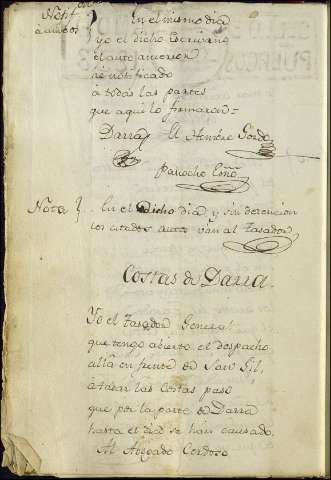 Notif.on
à ambos
En el mismo dia
Yo el dicho Escribano
el auto anterior
he notificado
a todas las partes
que aqui lo firmaron=
Darra El Hombre Gordo
Panocho Essno
Nota } En el dicho dia y sin detencion
los citados autos van al Tasador
Costas de Darra.
Yo el Tasador General
que tengo abierto el despacho
allà en frente de San Gil,
a tasar las costas paso
que por la parte de Darra
hasta el dia se han causado.
Al Abogado Cordozo